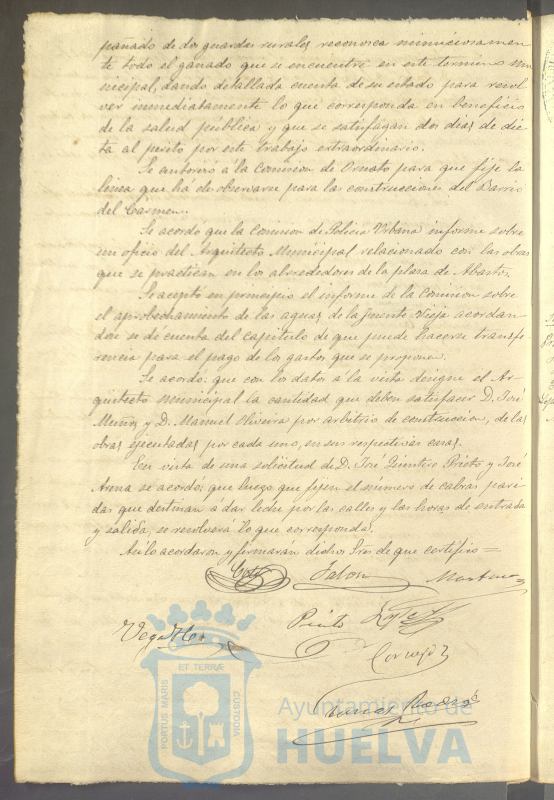 pañado de dos guardas rurales reconosca minuciosamen
te todo el ganado que se encuentre en este termino mu
nicipal, dando detallada cuenta de su estado para resol
ver inmediatamente lo que corresponda en beneficio
de la salud pública y que se satisfagan dos dias de die
ta al perito por este trabajo extraordinario.
Se autorizó á la Comision de Ornato para que fije la
linea que há de observarse para las construcciones del Barrio
del Carmen.
Se acordó que la Comision de Policia Urbana informe sobre
un oficio del Arquitecto Municipal relacionado con las obras
que se practican en los alrededores de la plaza de Abastos.
Se aceptó en principio el informe de la Comision sobre
el aprobechamiento de las aguas de la fuente Vieja acordan
dose se dé cuenta del capitulo de que puede hacerse transfe
rencia para el pago de los gastos que se propone.
Se acordó: que con los datos á la vista designe el Ar
quitecto municipal la cantidad que deben satisfacer D. José
Muñoz y D. Manuel Oliveira por arbitrio de construccion, de las
obras ejecutadas por cada uno, en sus respectivas casas.
En vista de una solicitud de D. José Quintero Prieto y José
Arena se acordó; que luego que fijen el número de cabras pari
das que destinan á dar leche por las calles y las horas de entrada
y salida, se resolverá lo que corresponda.
Asi lo acordaron y firmaran dichos Sres de que certifico =
Prieto
Cornejo
ET TERRÆ
PORTUS MARIS
CUSTODIA
Ayuntamiento de
HUELVA